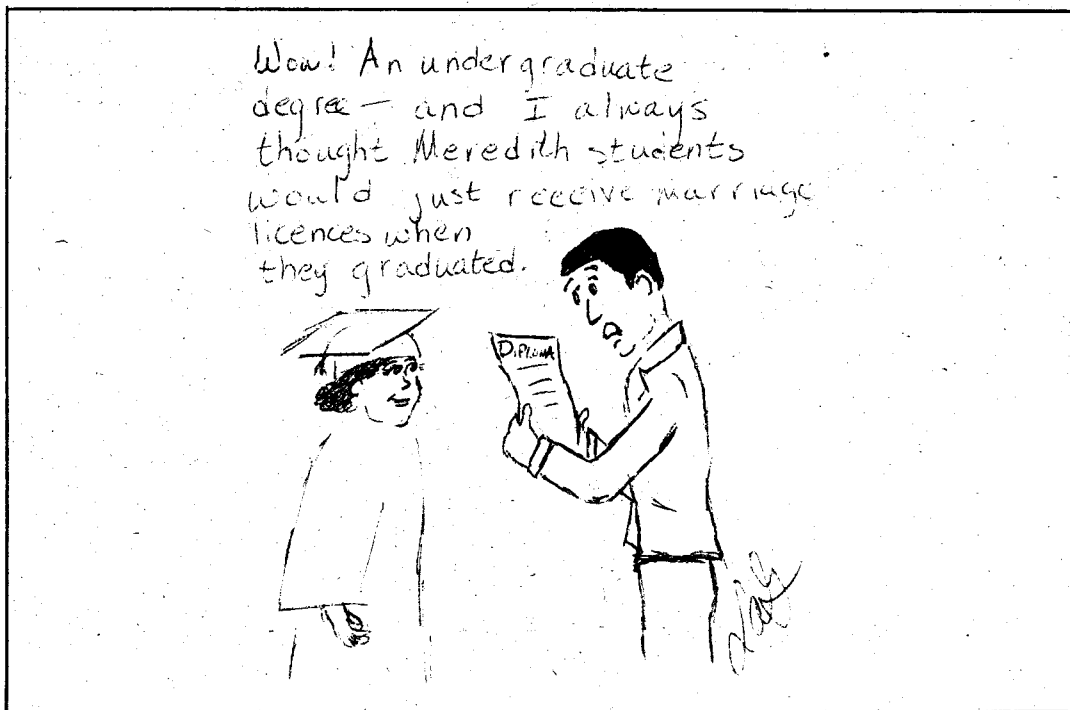 Wow! An undergraduate
degree — and I always
thought Meredith students
would just receive marriage
licences when
they graduated.
DIPLOMA